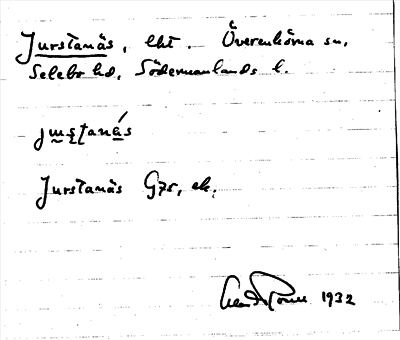 Jurstanäs, lht. Överenhörna sn,
Selebo hd, Södermanlands l.
Jurstanäs Gzs, ek.
1932